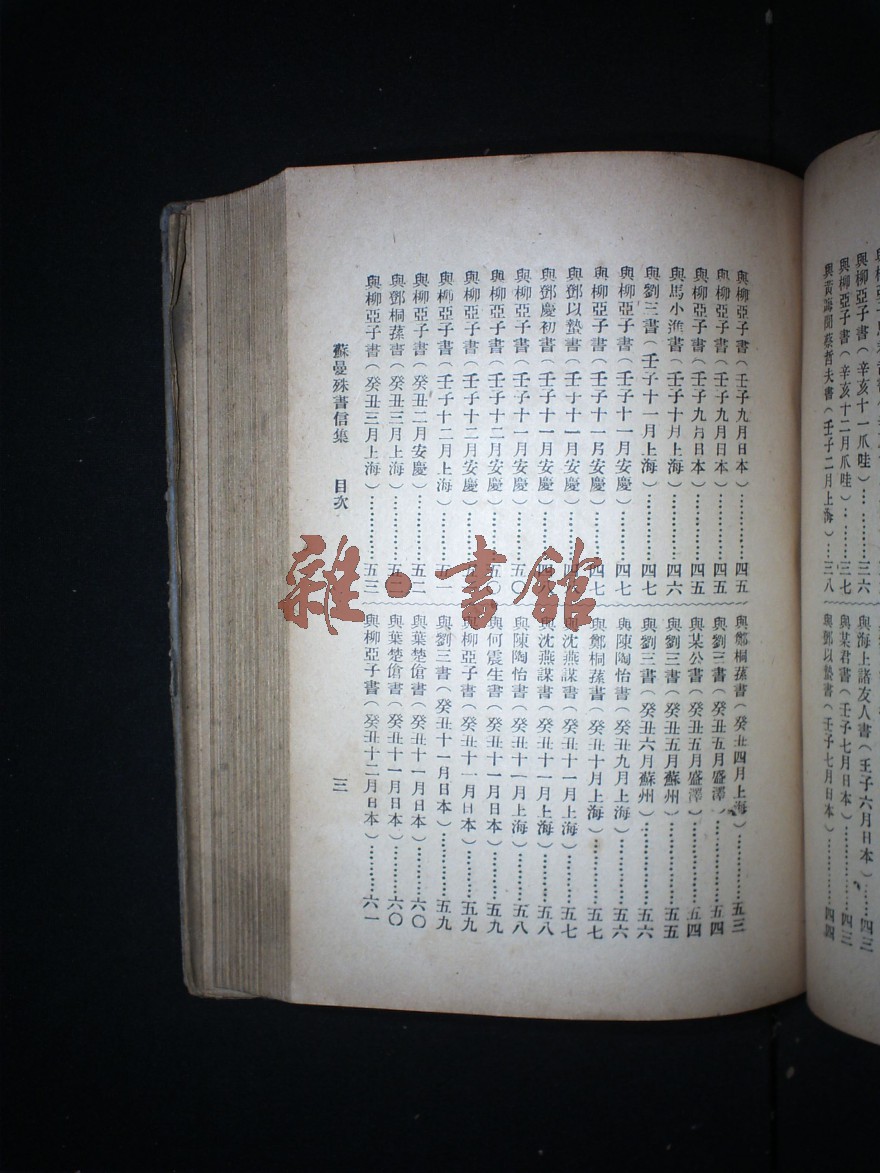 與柳亞子書(辛亥十一爪哇)………三六
與柳亞子書(辛亥十二月爪哇)………三七
與黃海聞蔡哲夫書(壬子二月上海)…三八
與海上諸友人書(壬子六月日本)………四三
與某君書(壬子七月日本)………四三
與鄧以蟄書(壬子七月日本)………四四
與柳亞子書(壬子九月日本)………四五
與柳亞子書(壬子九月日本)………四五
與柳亞子書(壬子九月日本)………四五
與馬小進書(壬子十月上海)………四六
與劉三書(壬子十一月上海)………四七
與柳亞子書(壬子十一月安慶)………四七
與柳亞子書(壬子十一月安慶)………四七
與鄧以蟄書(壬子十一月安慶)………四八
與鄧慶初書(壬子十一月安慶)………
與柳亞子書(壬子十一月安慶)………五〇
與柳亞子書(壬子十二月安慶)………五〇
與柳亞子書(壬子十二月安慶)………
與柳亞子書(壬子十二月上海)………五一
與柳亞子書(癸丑二月安慶)………五二
與鄧桐蓀書(癸丑三月上海)………五二
與柳亞子書(癸丑三月上海)………五三
與鄭桐蓀書(癸丑四月上海)………五三
與劉三書(癸丑五月盛澤)………五四
與某公書(癸丑五月盛澤)………五四
與劉三書(癸丑五月蘇州)………五五
與劉三書(癸丑六月蘇州)………五六
與陳陶怡書(癸丑九月上海)………五六
與鄭桐蓀書(癸丑十月上海)………五七
與沈燕謀書(癸丑十一月上海)………五七
與沈燕謀書(癸丑十一月上海)………五八
與陳陶怡書(癸丑十一月上海)………五八
與何震生書(癸丑十一月日本)………五九
與柳亞子書(癸丑十一月日本)………五九
與劉三書(癸丑十一月日本)………五九
與葉楚傖書(癸丑十一月日本)………六〇
與葉楚傖書(癸丑十一月日本)………六〇
與柳亞子書(癸丑十二月日本)………六一
蘇曼殊書信集 目次 三
雜·書館